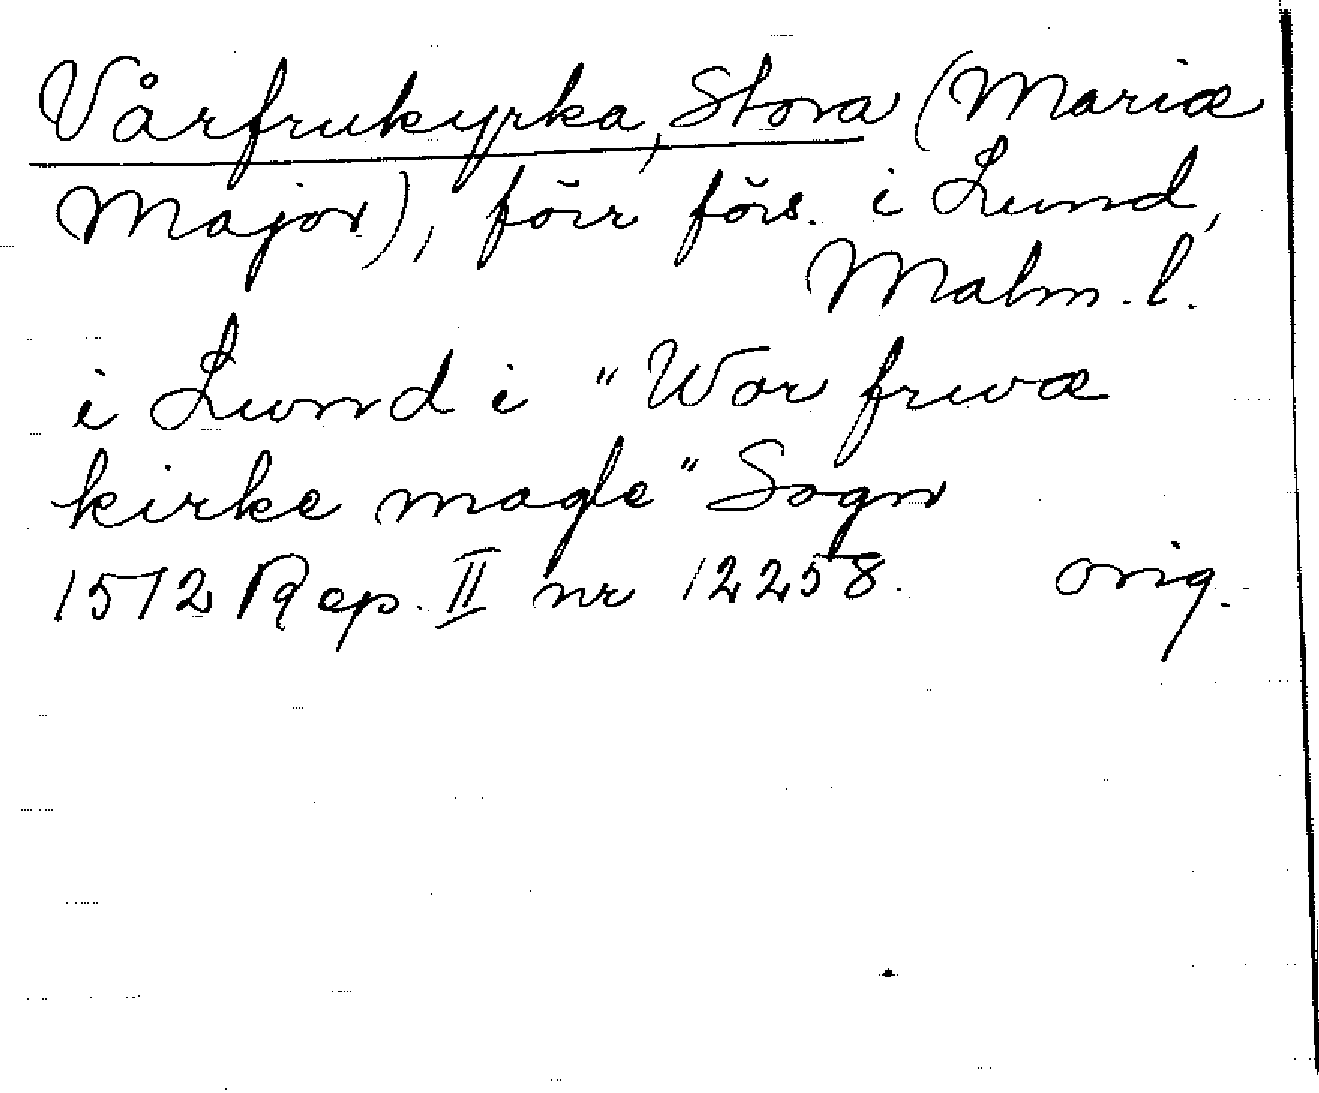 Vårfrukyrka, Stora (Mariæ
Major), förr förs. i Lund,
Malm. l.
i Lund i "Wor frwæ
kirke magle" Sogn
1512 Rep. II nr 12258. orig.